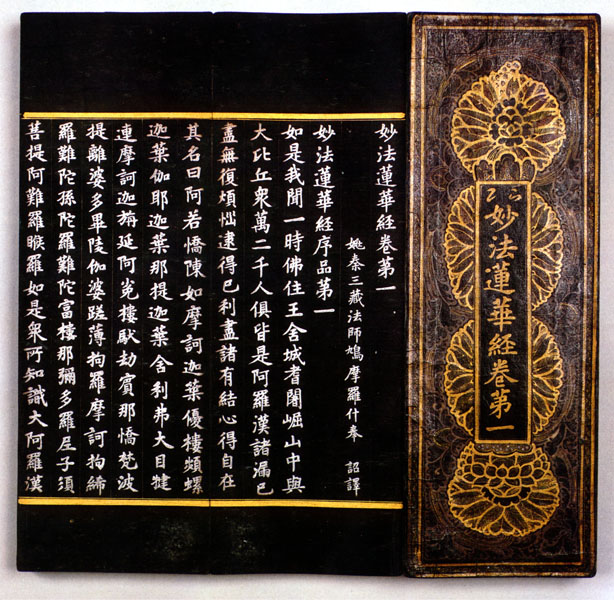 妙法蓮華經卷第一
妙法蓮華經卷第一
姚秦三藏法師鳩摩羅什奉 詔譯
妙法蓮華經序品第一
如是我聞一時佛住王舍城耆闍崛山中與
大比丘衆萬二千人俱皆是阿羅漢諸漏已
盡無復煩惱逮得已利盡諸有結心得自在
其名曰阿若憍陳如摩訶迦葉優樓頻螺
迦葉伽耶迦葉那提迦葉舍利弗大目犍
連摩訶迦旃延阿㝹樓馱劫賓那憍梵波
提離婆多畢陵伽婆蹉薄拘羅摩訶拘絺
羅難陀孫陀羅難陀富樓那彌多羅尼子須
菩提阿難羅睺羅如是衆所知識大阿羅漢